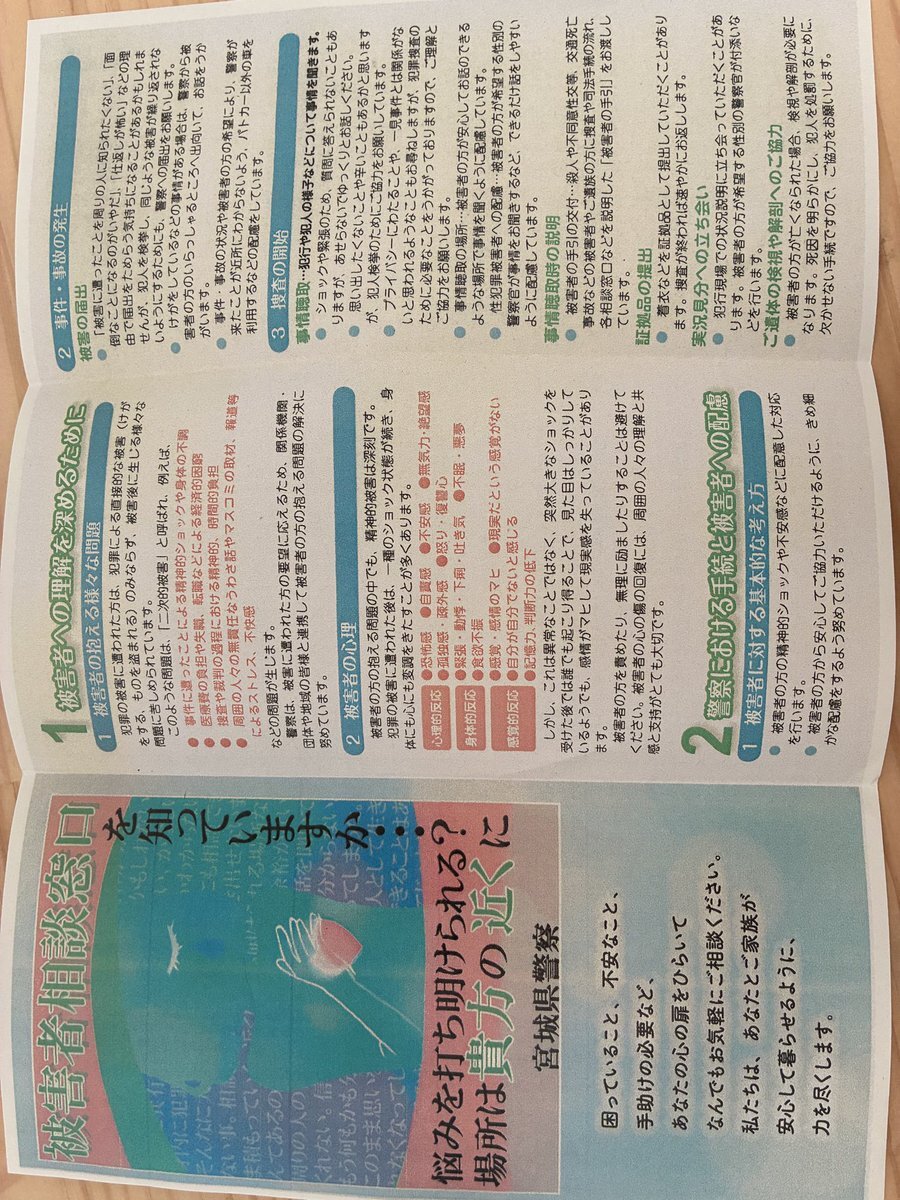 被害者相談窓口
を知っていますか…
悩みを打ち明けられる？
場所は貴方の近くに
宮城県警察
困っていること、不安なこと、
手助けの必要など、
あなたの心の扉をひらいて
なんでもお気軽にご相談ください。
私たちは、あなたとご家族が
安心して暮らせるように、
力を尽くします。
1 被害者への理解を深めるために
1 被害者の抱える様々な問題
犯罪の被害に遭われた方は、犯罪による直接的な被害（けが
をする、ものを盗まれる）のみならず、被害後に生じる様々な
問題に苦しめられています。
このような問題は、「二次的被害」と呼ばれ、例えば、
● 事件に遭ったことによる精神的ショックや身体の不調
● 医療費の負担や失職、転職などによる経済的困窮
● 捜査や裁判の過程における精神的、時間的負担
● 周囲の人々の無責任なうわさ話やマスコミの取材、報道等
によるストレス、不快感
などの問題が生じます。
警察は、被害に遭われた方の要望に応えるため、関係機関・
団体や地域の皆様と連携して被害者の方の抱える問題の解決に
努めています。
2 被害者の心理
被害者の方の抱える問題の中でも、精神的被害は深刻です。
犯罪の被害に遭われた後は、一種のショック状態が続き、身
体にも心にも変調をきたすことが多くあります。
心理的反応 ●恐怖感 ●自責感 ●不安感 ●無気力・絶望感
●孤独感・疎外感 ●怒り・復讐心
身体的反応 ●緊張・動悸・下痢・吐き気 ●不眠・悪夢
●食欲不振
感覚的反応 ●感覚・感情のマヒ ●現実だという感覚がない
●自分が自分でないと感じる
●記憶力、判断力の低下
しかし、これは異常なことではなく、突然大きなショックを
受けた後では誰でも起こり得ることで、見た目はしっかりして
いるようでも、感情がマヒして現実感を失っていることがあり
ます。
被害者の方を責めたり、無理に励ましたりすることは避けて
ください。被害者の心の傷の回復には、周囲の人々の理解と共
感と支持がとても大切です。
2 警察における手続と被害者への配慮
1 被害者に対する基本的な考え方
● 被害者の方の精神的ショックや不安感などに配意した対応
を行います。
● 被害者の方から安心してご協力いただけるように、きめ細
かな配慮をするよう努めています。
2 事件・事故の発生
被害の届出
● 「被害に遭ったことを周りの人に知られたくない」、「面
倒なことになるのがいやだ」、「仕返しが怖い」などの理
由で届出をためらう気持ちになることがあるかもしれま
せんが、犯人を検挙し、同じような被害が繰り返されな
いようにするためにも、警察への届出をお願いします。
● けがをしているなどの事情がある場合は、警察から被
害者の方のいらっしゃるところへ出向いて、お話をうか
がいます。
● 事件・事故の状況や被害者の方の希望により、警察が
来たことが近所にわからないよう、パトカー以外の車を
利用するなどの配慮をしています。
3 捜査の開始
事情聴取…犯行や犯人の様子などについて事情を聞きます。
● ショックや緊張のため、質問に答えられないこともあ
りますが、あせらないでゆっくりとお話しください。
● 思い出したくないことや辛いこともあるかと思います
が、犯人検挙のためにご協力をお願いしています。
● プライバシーにわたることや、一見事件とは関係がな
いと思われるようなこともお尋ねしますが、犯罪捜査の
ために必要なことをうかがっておりますので、ご理解と
ご協力をお願いします。
● 事情聴取の場所…被害者の方が安心してお話のできる
ような場所で事情を聞くように配慮しています。
● 性犯罪被害者への配慮…被害者の方が希望する性別の
警察官が事情をお聞きするなど、できるだけ話をしやすい
ように配慮しています。
事情聴取時の説明
● 被害者の手引の交付…殺人や不同意性交等、交通死亡
事故などの被害者やご遺族の方に捜査や司法手続の流れ、
各相談窓口などを説明した「被害者の手引」をお渡しし
ています。
証拠品の提出
● 着衣などを証拠品として提出していただくことがあり
ます。捜査が終われば速やかにお返しします。
実況見分への立ち会い
● 犯行現場での状況説明に立ち会っていただくことがあ
ります。被害者の方が希望する性別の警察官が付添いな
どを行います。
ご遺体の検視や解剖へのご協力
● 被害者の方が亡くなられた場合、検視や解剖が必要に
なります。死因を明らかにし、犯人を処罰するために、
欠かせない手続ですので、ご協力をお願いします。